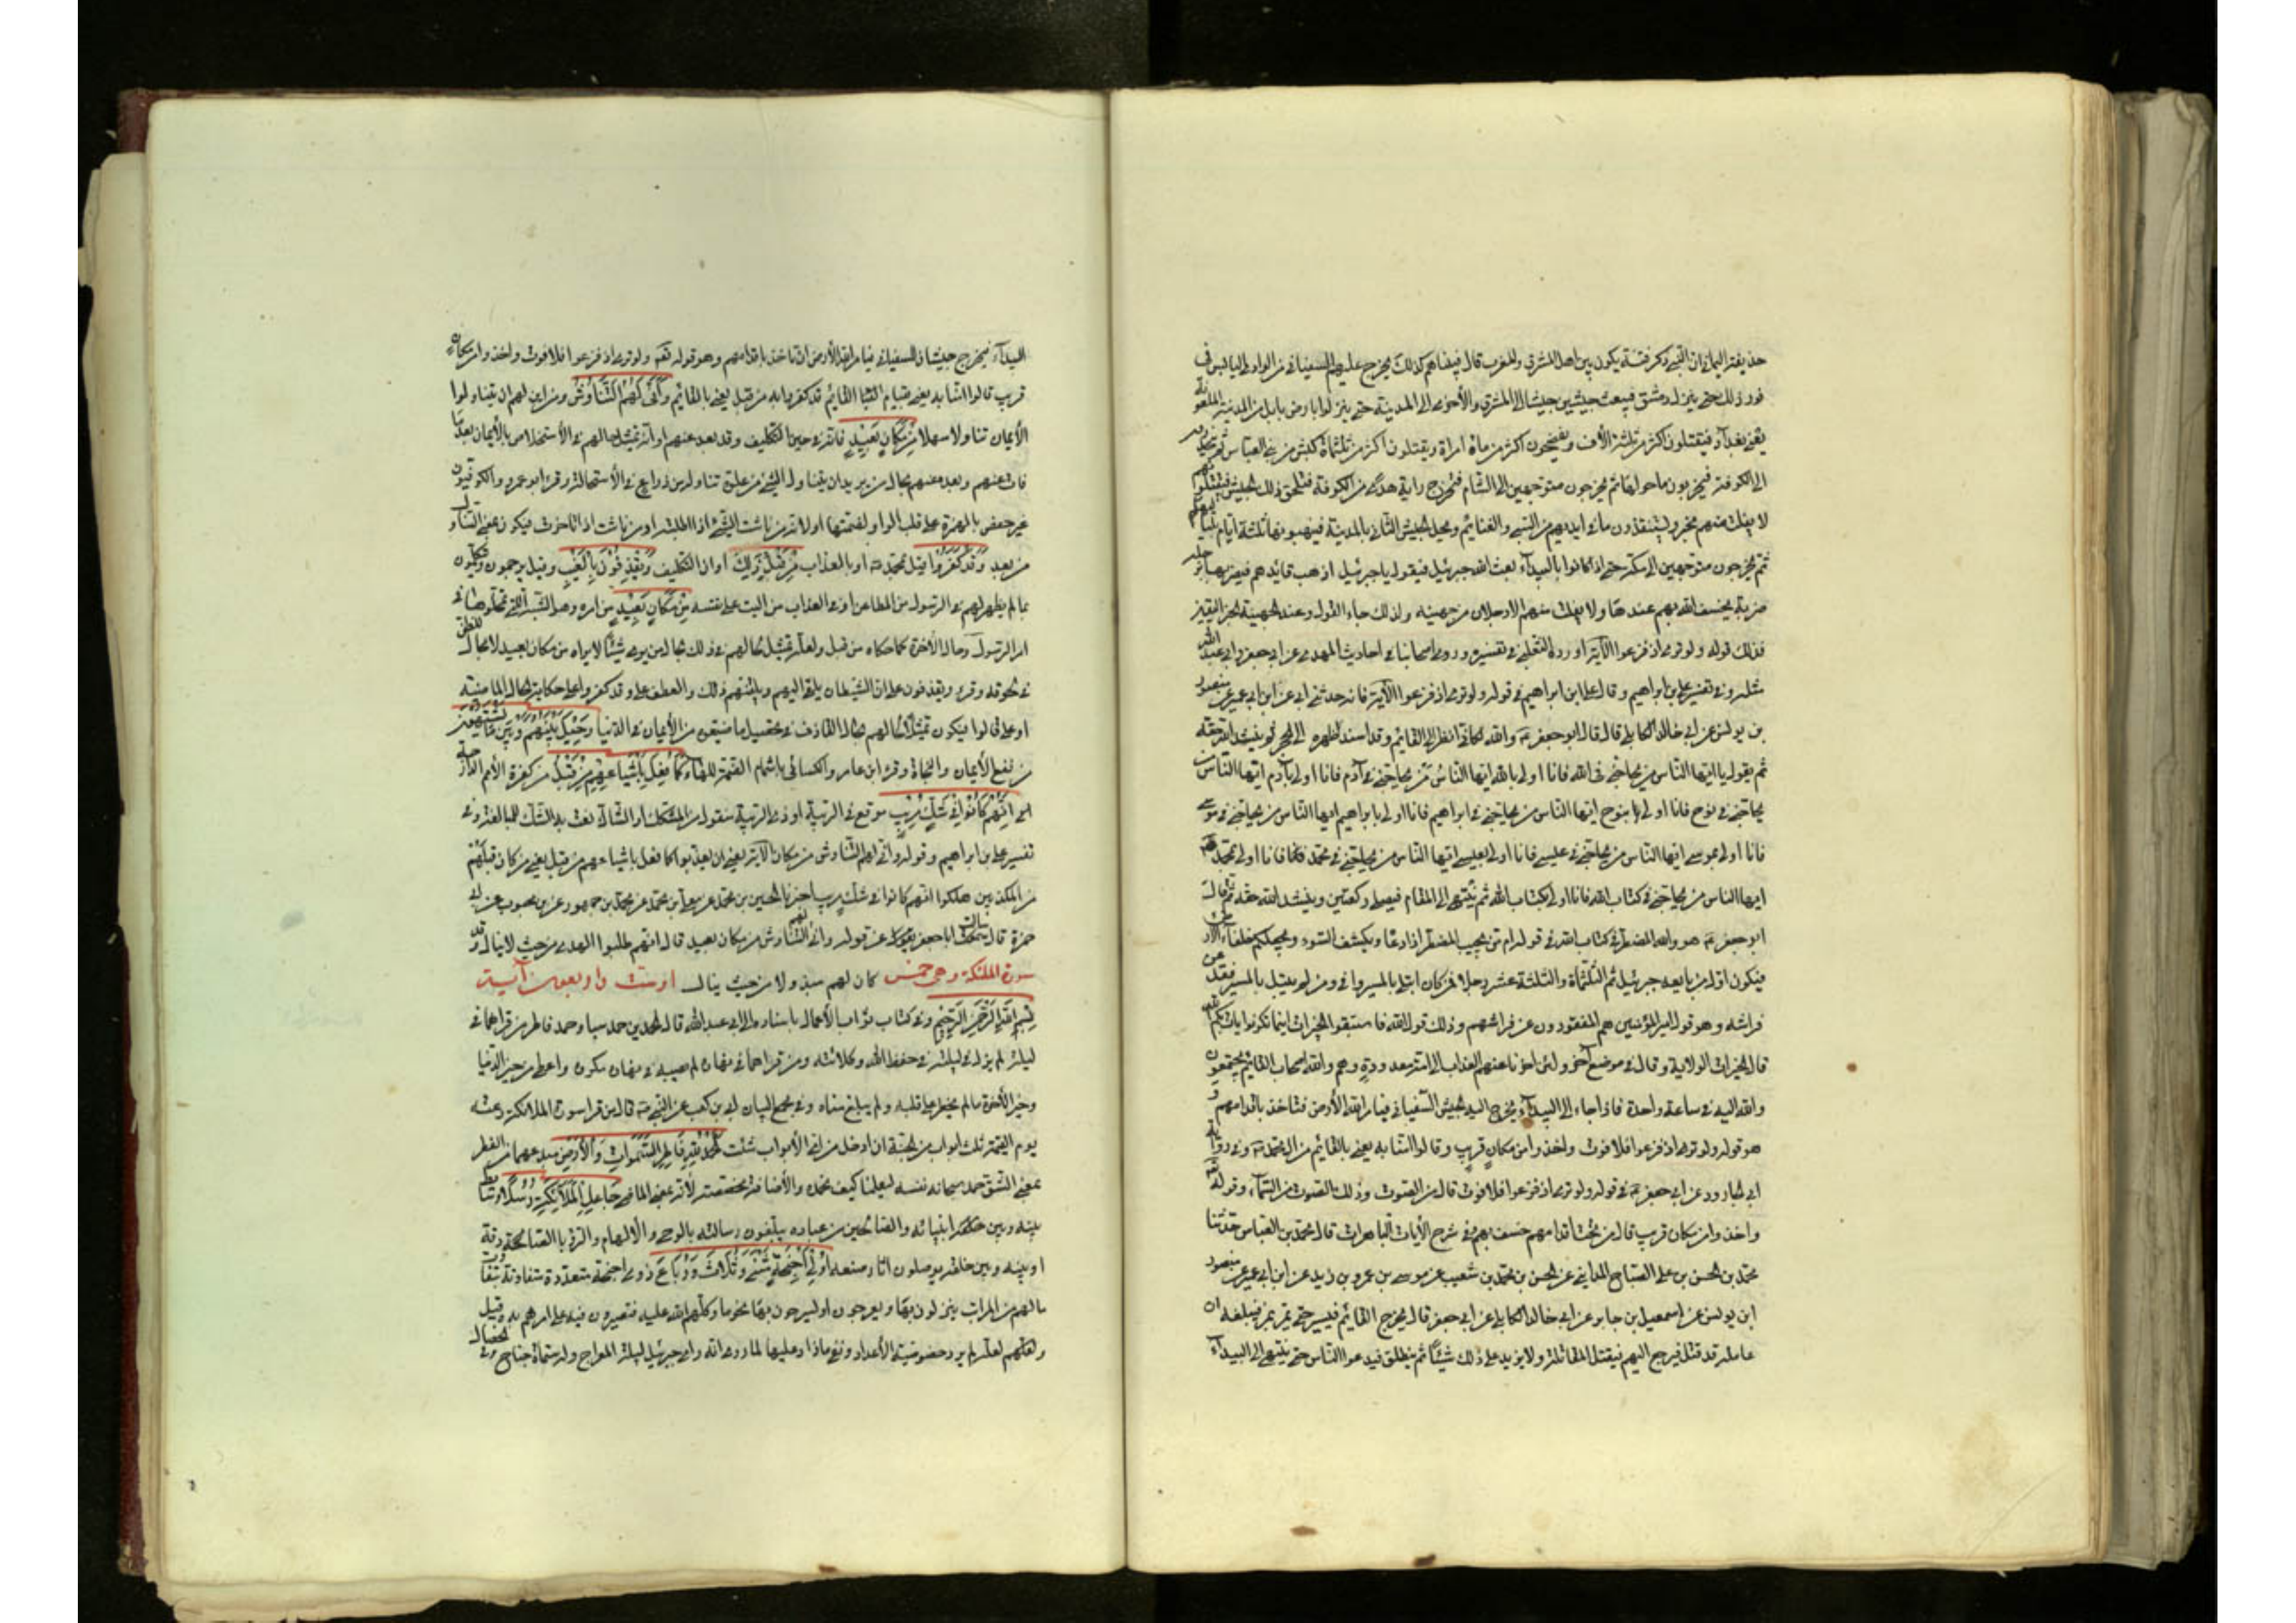 حذيفة اليماني ان النبي ذكر فتنة يكون بين اهل المشرق والمغرب قال فبيناهم كذلك يخرج عليهم السفياني من الوادي اليابس في
فور ذلك حتى ينزل دمشق فيبعث جيشين جيشا الى المشرق والأخرى الى المدينة حتى ينزلوا بارض بابل من المدينة الملعونة
يعني بغداد فيقتلون اكثر من ثلثة الآف ويفضحون اكثر من مأة امراة ويقتلون اكثر من ثلثمأة كبش من بني العباس ثم ينحدرون
الى الكوفة فيخربون ما حولها ثم يخرجون متوجهين الى الشام فتخرج راية هدى من الكوفة فتلحق ذلك الجيش فيقتلونهم
لا يفلت منهم مخبر وليستنقذون ما في ايديهم من السبي والغنائم ويحل الجيش الثاني بالمدينة فينهبونها ثلثة ايام بلياليها
ثم يخرجون متوجهين الى مكة حتى اذا كانوا بالبيداء بعث الله جبرئيل فيقول يا جبرئيل اذهب فابدهم فيضربها برجله
ضربة يخسف الله بهم عندها ولا يفلت منهم الا رجلان من جهينه ولذلك جاء القول وعند جهينة الخبر اليقين
فذلك قوله ولو ترى اذ فزعوا الآية اورده الثعلبي في تفسيره وروى اصحابنا في احاديث المهدي عن ابي جعفر وابي عبد الله
مثله وفي تفسير علي بن ابراهيم وقال علي ابن ابراهيم في قوله ولو ترى اذ فزعوا الآية فانه حدثني ابي عن ابن ابي عمير عن منصور
بن يونس عن ابي خالد الكابلي قال قال ابو جعفر والله لكاني انظر الى القائم وقد اسند ظهره الى الحجر ثم ينشد الله حقه
ثم يقول يا ايها الناس من يحاجني في الله فانا اولى بالله ايها الناس من يحاجني في آدم فانا اولى بآدم ايها الناس من
يحاجني في نوح فانا اولى بنوح ايها الناس من يحاجني في ابراهيم فانا اولى بابراهيم ايها الناس من يحاجني في موسى
فانا اولى بموسى ايها الناس من يحاجني في عيسى فانا اولى بعيسى ايها الناس من يحاجني في محمد فانا اولى بمحمد
ايها الناس من يحاجني في كتاب الله فانا اولى بكتاب الله ثم ينتهي الى المقام فيصلي ركعتين وينشد الله حقه ثم قال
ابو جعفر هو والله المضطر في كتاب الله في قوله ام من يجيب المضطر اذا دعاه ويكشف السوء ويجعلكم خلفاء الأرض
فيكون اول من يبايعه جبرئيل ثم الثلثمأة والثلثة عشر رجلا فمن كان ابتلى بالمسير وافى ومن لم يبتل بالمسير فقد عن
فراشه وهو قول امير المؤمنين هم المفقودون عن فراشهم وذلك قول الله فاستبقوا الخيرات اينما تكونوا يات بكم الله
قال الخيرات الولاية وقال في موضع آخر ولئن اخرنا عنهم العذاب الى امة معدودة وهم والله اصحاب القائم يجتمعون
والله اليه في ساعة واحدة فاذا جاء الى البيداء يخرج اليه جيش السفياني فيامر الله الأرض فتاخذ باقدامهم و
هو قوله ولو ترى اذ فزعوا فلا فوت واخذوا من مكان قريب وقالوا آمنا به يعني بالقائم من آل محمد وفي رواية
ابي الجارود عن ابي جعفر في قوله ولو ترى اذ فزعوا فلا فوت قال من الصوت وذلك الصوت من السماء وقوله
واخذوا من مكان قريب قال من تحت اقدامهم خسف بهم في شرح الأيات الباهرات قال محمد بن العباس حدثنا
محمد بن الحسن بن علي الصباح المدايني عن الحسن بن محمد بن شعيب عن موسى بن عمرو بن زيد عن ابن ابي عمير عن منصور
ابن يونس عن اسمعيل بن جابر عن ابي خالد الكابلي عن ابي جعفر قال يخرج القائم فيسير حتى يمر بمر فيبلغه ان
عامله قد قتل فيرجع اليهم فيقتل المقاتلة ولا يزيد على ذلك شيئا ثم ينطلق فيدعوا الناس حتى ينتهي الى البيداء
البيداء فيخرج جيشان للسفياني فيامر الله الأرض ان تاخذ باقدامهم وهو قوله ولو ترى اذ فزعوا فلا فوت واخذوا من مكان
قريب قالوا آمنا به يعني بقيام القائم وقد كفروا به من قبل يعني بالقائم وَأَنّى لَهُمُ التَّنَاوُشُ ومن اين لهم ان يتناولوا
الأيمان تناولا سهلا مِنْ مَكَانٍ بَعِيدٍ فانه في حيز التكليف وقد بعد عنهم وانه تمثيل لحالهم في الأستخلاص بالأيمان بعد ما
فات عنهم وبعد عنهم بحال من يريد ان يتناول الشيء من غلوة تناوله من ذراع في الأستحالة وقرا ابو عمرو والكوفيون
غير حفص بالهمزة على قلب الواو لضمتها او لانه من ناشت الشيء اذا اطلبته او من ناشت اذا تاخرت فيكون بمعنى التناول
من بعد وَقَدْ كَفَرُوا قيل بمحمد او بالعذاب مِنْ قَبْلُ ذلك اوان التكليف وَيَقْذِفُونَ بِالْغَيْبِ وقيل يرجمون ويتكلمون
بما لم يظهر لهم في الرسول من المطاعن او في العذاب من البت على نفسه مِنْ مَكَانٍ بَعِيدٍ من امره وهو الشبه التي تمحلوها في
امر الرسول وحال الأخرة كما حكاه من قبل ولعله تمثيل لحالهم في ذلك بحال من يرمي شيئا لا يراه من مكان بعيد لا مجال للظن
في لحوقه وقرئ ويقذفون على ان الشيطان يلقي اليهم ويلقنهم ذلك والعطف على وقد كفروا على حكاية الحال الماضية
او على قالوا فيكون تمثيلا لحالهم بحال القاذف في تحصيل ما ضيعوه من الأيمان في الدنيا وَحِيلَ بَيْنَهُمْ وَبَيْنَ مَا يَشْتَهُونَ
من نفع الأيمان والنجاة وقرا ابن عامر والكسائي باشمام الضمة للحاء كَمَا فُعِلَ بِأَشْيَاعِهِمْ مِنْ قَبْلُ من كفرة الأمم الدارجة
اِنَّهُمْ كَانُوا فِي شَكٍّ مُرِيبٍ موقع في الريبة او ذي الريبة منقول من المشكك او الشاك نعت به الشك للمبالغة وفي
تفسير علي بن ابراهيم وقوله وانى لهم التناوش من مكان الآية يعني ان يعذبوا كما فعل باشياعهم من قبل يعني من كان قبلهم
من المكذبين هلكوا انهم كانوا في شك مريب اخبرنا الحسين بن محمد عن معلى بن محمد عن محمد بن جمهور عن بن محبوب عن ابي
حمزة قال سألت ابا جعفر عن قوله وانى لهم التناوش من مكان بعيد قال انهم طلبوا الهدى من حيث لا ينال وقد
سورة الملئكة وهي خمس كان لهم مبذولا من حيث ينال او ست واربعون آية
بسم الله الرحمن الرحيم وفي كتاب ثواب الأعمال باسناده الى ابي عبد الله قال الحمدين حمد سبا وحمد فاطر من قراهما في
ليلة لم يزل في ليلته في حفظ الله وكلائته ومن قراهما في نهاره لم يصبه في نهاره مكروه واعطى من خير الدنيا
وخير الأخرة ما لم يخطر على قلبه ولم يبلغ مناه وفي مجمع البيان ابي بن كعب عن النبي قال من قرا سورة الملائكة دعته
يوم القيمة ثلث ابواب من الجنة ان ادخل من اي الأبواب شئت الْحَمْدُ لِلّهِ فَاطِرِ السَّمَوَاتِ وَالْأَرْضِ مبدعهما من الفطر
بمعنى الشق حمد سبحانه نفسه ليعلمنا كيف نحمده والأضافة محضة لأنه بمعنى الماضي جَاعِلِ الْمَلَائِكَةِ رُسُلًا وسائط
بينه وبين خلقه انبيائه والصالحين من عباده يبلغون رسالته بالوحي والألهام والرؤيا الصالحة
او بينه وبين خلقه يوصلون اثار صنعه اُولِي أَجْنِحَةٍ مَثْنَى وَثُلَاثَ وَرُبَاعَ ذوي اجنحة متعددة متفاوتة بتفاوت
ما لهم من المراتب ينزلون بها ويعرجون او يسرعون بها نحو ما وكلهم الله عليه فيتصرفون فيه على امرهم به وقيل
ولعله لم يرد خصوصية الأعداد ونفي ما زاد عليها لما روى انه راى جبرئيل ليلة المعراج وله ستمأة جناح وفي الخصال